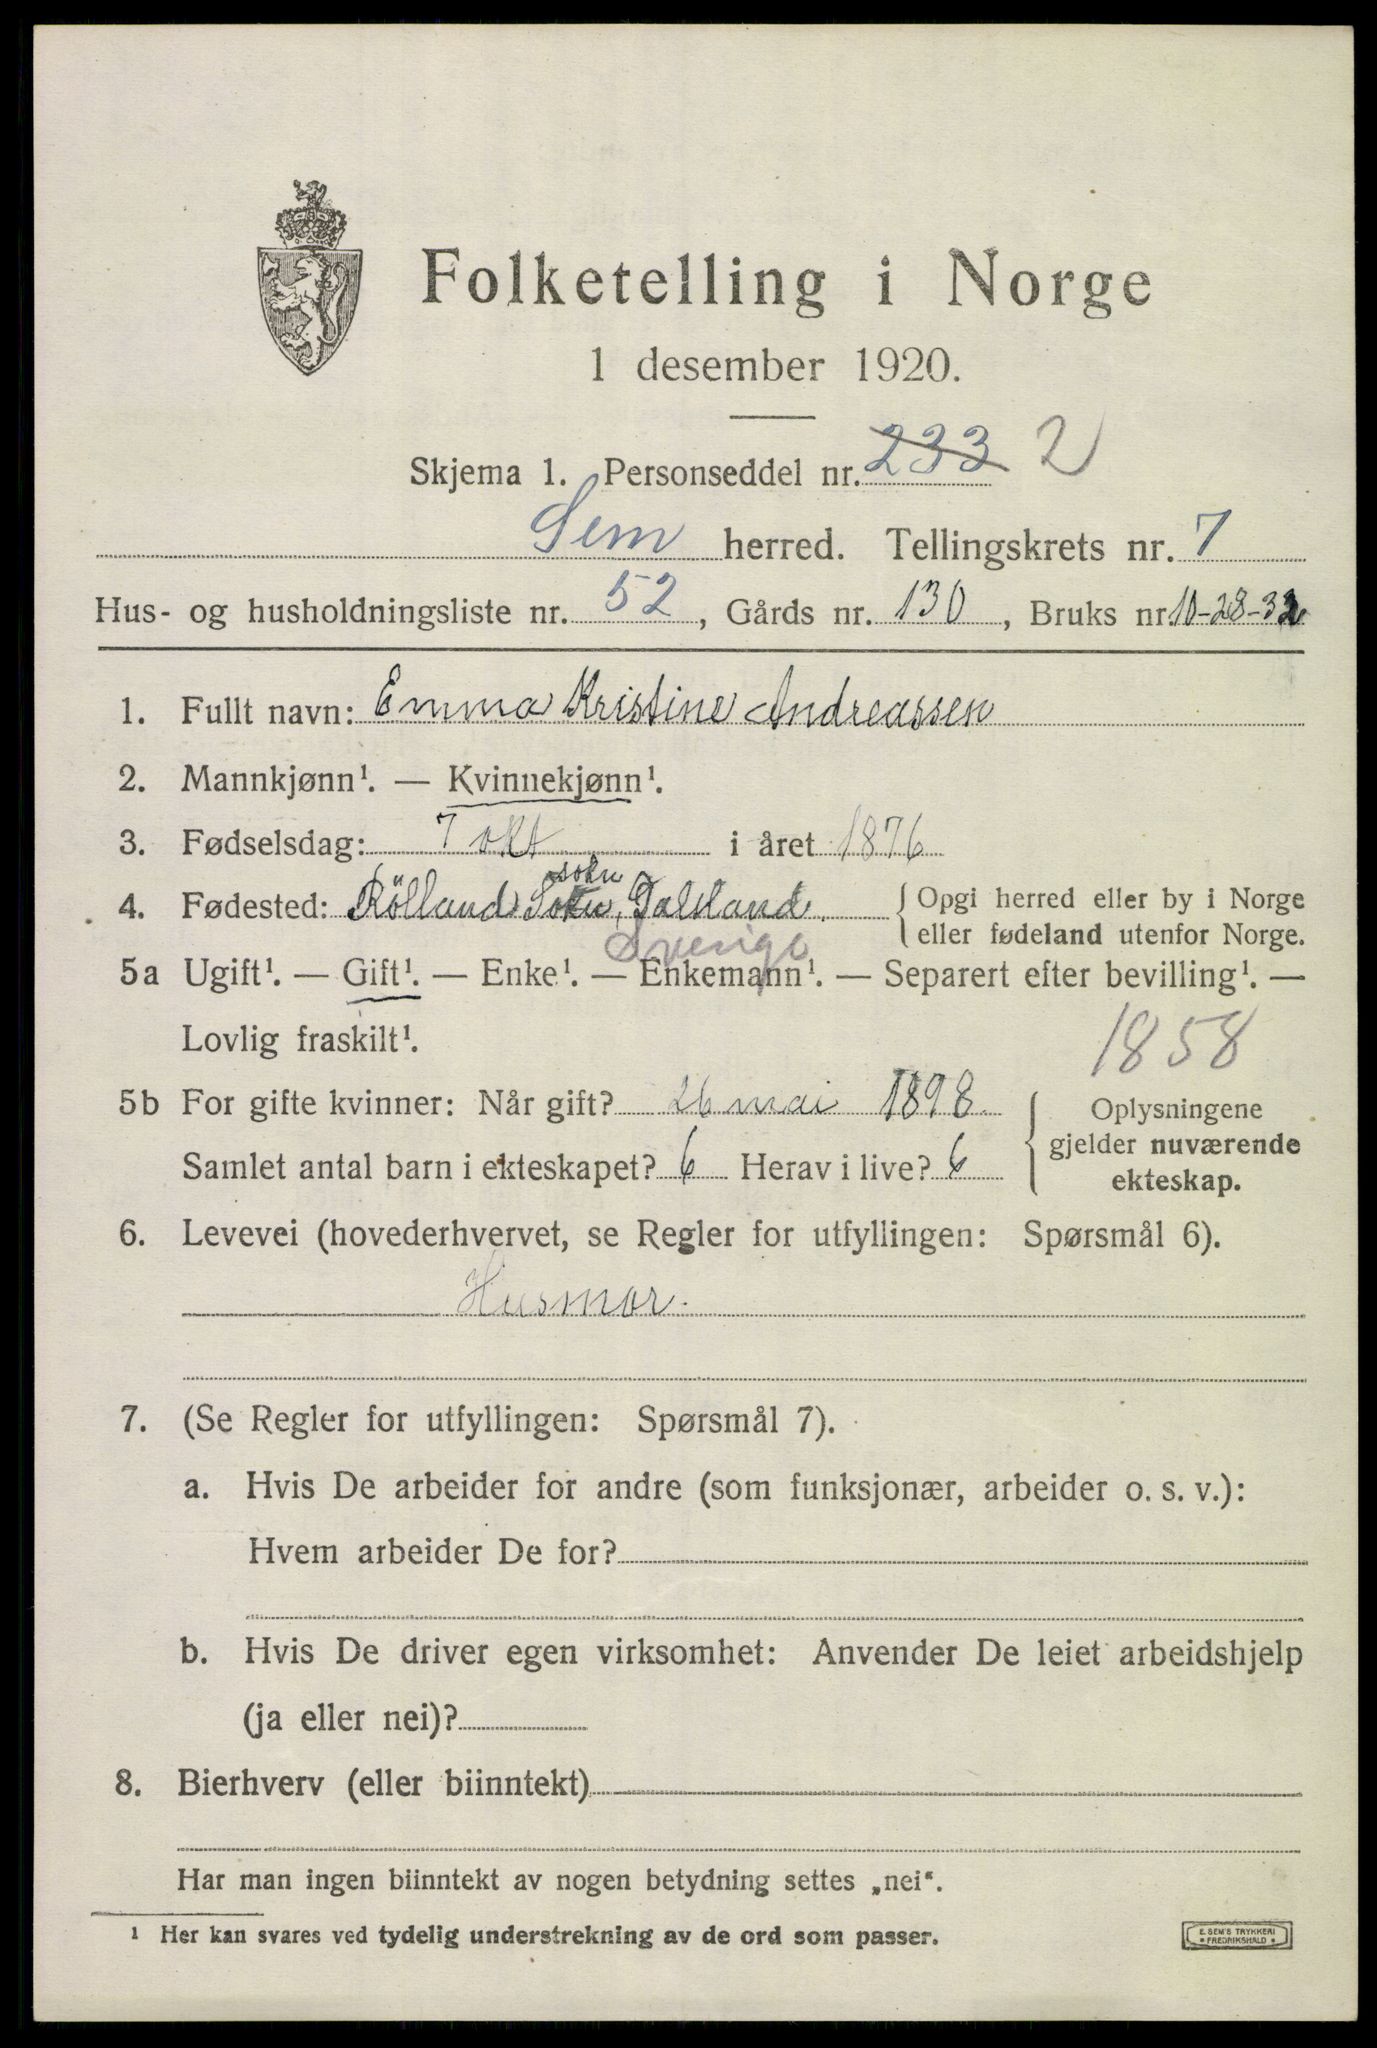 Folketelling i Norge
1 desember 1920.
Skjema 1. Personseddel nr. 233 2
Sem herred. Tellingskrets nr. 7
Hus- og husholdningsliste nr. 52, Gårds nr. 130, Bruks nr. 10-28-32
1. Fullt navn: Emma Kristine Andreassen
2. Mannkjønn¹. — Kvinnekjønn¹.
3. Fødselsdag: 7 okt i året 1876
sokn
4. Fødested: Rölland Sokn, Dalsland. Opgi herred eller by i Norge
eller fødeland utenfor Norge.
Sverige
5a Ugift¹. — Gift¹. — Enke¹. — Enkemann¹. — Separert efter bevilling¹. —
Lovlig fraskilt¹.
1858
5b For gifte kvinner: Når gift? 26 mai 1898 Oplysningene
gjelder nuværende
Samlet antal barn i ekteskapet? 6 Herav i live? 6 ekteskap.
6. Levevei (hovederhvervet, se Regler for utfyllingen: Spørsmål 6).
Husmor.
7. (Se Regler for utfyllingen: Spørsmål 7).
a. Hvis De arbeider for andre (som funksjonær, arbeider o. s. v.):
Hvem arbeider De for?
b. Hvis De driver egen virksomhet: Anvender De leiet arbeidshjelp
(ja eller nei)?
8. Bierhverv (eller biinntekt)
Har man ingen biinntekt av nogen betydning settes „nei“.
¹ Her kan svares ved tydelig understrekning av de ord som passer.
E. SEM'S TRYKKERI
* FREDRIKSHALD *